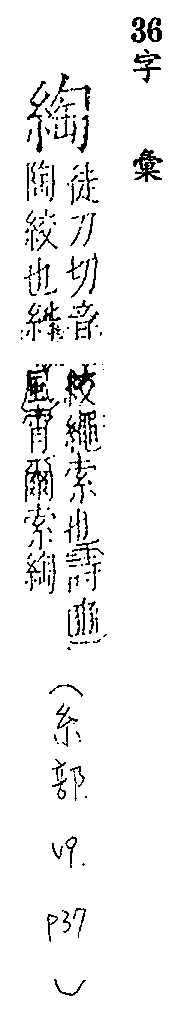 36字彙
綯
徒刀切音
陶絞也糾
絞繩索也詩豳
風宵爾索綯
(糸部. v9. p37)